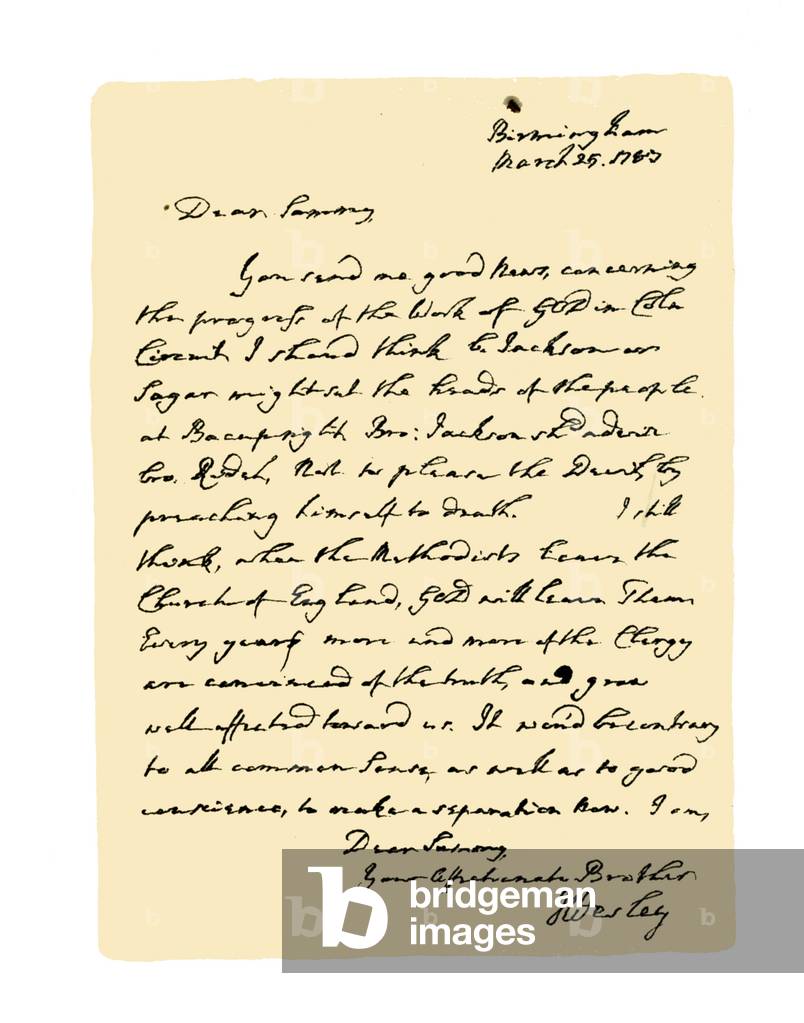 Birmingham
March 25. 1787
Dear Sammy,
You send me good News, concerning
the progress of the Work of GOD in Coln
Circuit. I shoud think Br. Jackson or
Sagar might set the heads of the people
at Bacup right. Bro: Jackson shd. advise
bro. Ridel, Not to please the Devil, by
preaching himself to death. I still
think, when the Methodists leave the
Church of England, GOD will leave Them
Every year more and more of the Clergy
are convinced of the truth, and grow
well-affected toward us. It woud be contrary
to all common Sense, as well as to good
conscience, to make a separation now. I am,
Dear Sammy,
Your Affectionate Brother
JWesley
bridgeman
images